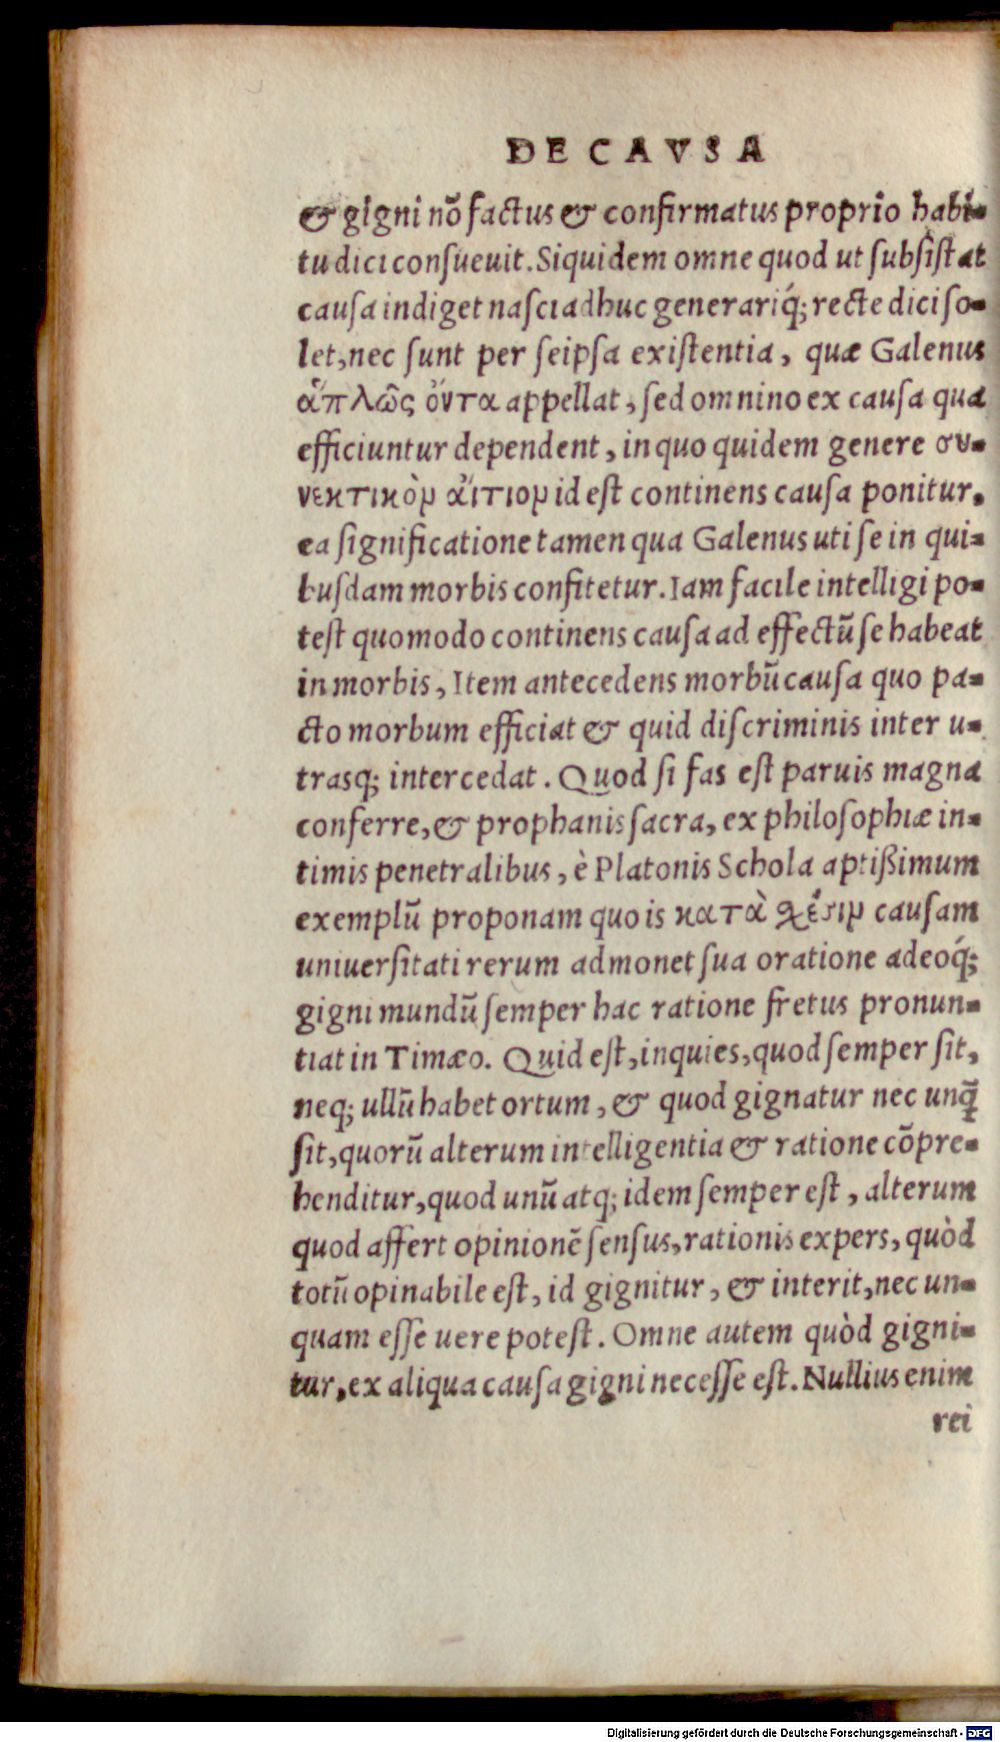 DE CAVSA
& gigni nõ factus & confirmatus proprio habi-
tu dici consueuit. Siquidem omne quod ut subsistat
causa indiget nasci adhuc generariq́; recte dici so-
let, nec sunt per seipsa existentia, quæ Galenus
ἁπλῶς ὄντα appellat, sed omnino ex causa qua
efficiuntur dependent, in quo quidem genere συ-
νεκτικὸν ἄιτιον id est continens causa ponitur,
ea significatione tamen qua Galenus uti se in qui-
busdam morbis confitetur. Iam facile intelligi po-
test quomodo continens causa ad effectũ se habeat
in morbis, Item antecedens morbũ causa quo pa-
cto morbum efficiat & quid discriminis inter u-
trasq; intercedat. Quod si fas est paruis magna
conferre, & prophanis sacra, ex philosophiæ in-
timis penetralibus, è Platonis Schola aptißimum
exemplũ proponam quo is κατὰ χέσιν causam
uniuersitati rerum admonet sua oratione adeoq́;
gigni mundũ semper hac ratione fretus pronun-
tiat in Timæo. Quid est, inquies, quod semper sit,
neq; ullũ habet ortum, & quod gignatur nec unq̃
sit, quorũ alterum intelligentia & ratione cõpre-
henditur, quod unũ atq; idem semper est, alterum
quod affert opinionẽ sensus, rationis expers, quòd
totũ opinabile est, id gignitur, & interit, nec un-
quam esse uere potest. Omne autem quòd gigni-
tur, ex aliqua causa gigni necesse est. Nullius enim
rei
Digitalisierung gefördert durch die Deutsche Forschungsgemeinschaft - DFG